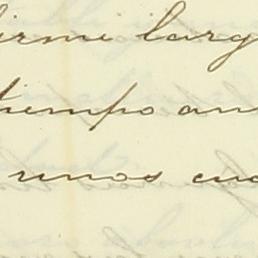 irme larg
tiempo an
unos cua